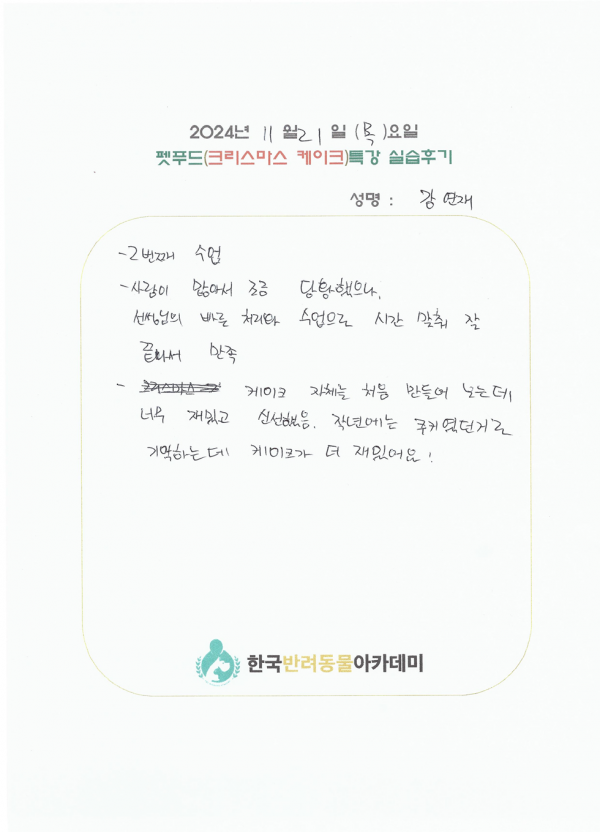 2024년 11 월 21 일 (목)요일
펫푸드(크리스마스 케이크)특강 실습후기
성명 : 김연재
-2번째 수업
-사람이 많아서 조금 당황했으나,
선생님의 빠른 처리와 수업으로 시간 맞춰 잘
끝나서 만족
- 케이크 자체는 처음 만들어 보는데
너무 재밌고 신선했음. 작년에는 쿠키였던거로
기억하는데 케이크가 더 재밌어요!
한국반려동물아카데미